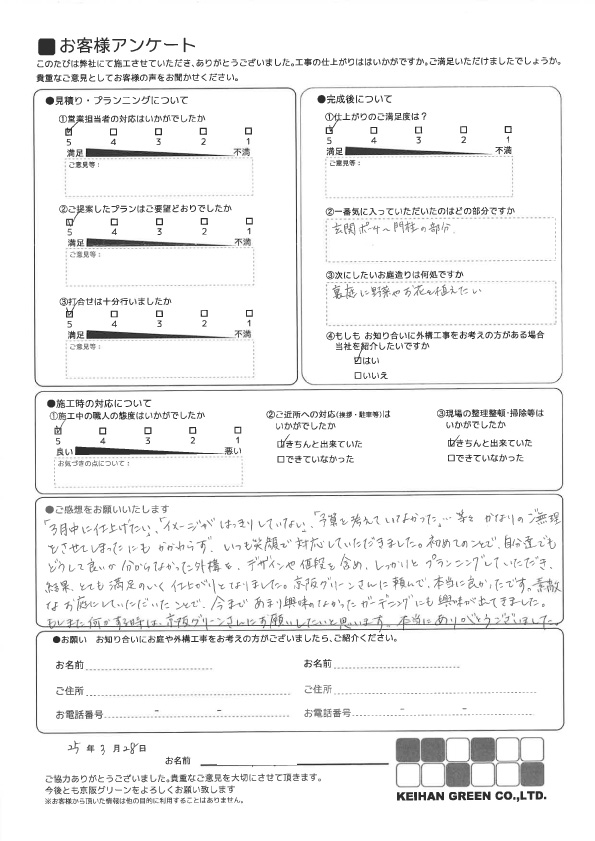 ■お客様アンケート
このたびは弊社にて施工させていただき、ありがとうございました。工事の仕上がりはいかがですか。ご満足いただけましたでしょうか。
貴重なご意見としてお客様の声をお聞かせください。
●見積り・プランニングについて
①営業担当者の対応はいかがでしたか
5 4 3 2 1
満足 不満
ご意見等：
②ご提案したプランはご要望どおりでしたか
5 4 3 2 1
満足 不満
ご意見等：
③打合せは十分行いましたか
5 4 3 2 1
満足 不満
ご意見等：
●完成後について
①仕上がりのご満足度は？
5 4 3 2 1
満足 不満
②一番気に入っていただいたのはどの部分ですか
玄関ポーチ〜門柱の部分.
③次にしたいお庭造りは何処ですか
裏庭に野菜やお花を植えたい
④もしも お知り合いに外構工事をお考えの方がある場合
当社を紹介したいですか
はい
いいえ
●施工時の対応について
①施工中の職人の態度はいかがでしたか
5 4 3 2 1
良い 悪い
お気づきの点について：
②ご近所への対応(挨拶・駐車等)は
いかがでしたか
きちんと出来ていた
できていなかった
③現場の整理整頓・掃除等は
いかがでしたか
きちんと出来ていた
できていなかった
●ご感想をお願いいたします
「3月中に仕上げたい」、「イメージがはっきりしていない」、「予算を考えていなかった」…等々 かなりのご無理
をさせてしまったにもかかわらず、いつも笑顔で対応していただきました。初めてのことで、自分達でも
どうして良いか分からなかった外構を、デザインや値段を含め、しっかりとプランニングしていただき、
結果、とても満足のいく仕上がりとなりました。京阪グリーンさんに頼んで、本当に良かったです。素敵
なお庭にしていただいたことで、今まであまり興味のなかったガーデニングにも興味が出てきました。
もしまた何かする時は、京阪グリーンさんにお願いしたいと思います。本当にありがとうございました。
●お願い お知り合いにお庭や外構工事をお考えの方がございましたら、ご紹介ください。
お名前 お名前
ご住所 ご住所
お電話番号 - - お電話番号 - -
25 年 3 月 28 日
お名前
ご協力ありがとうございました。貴重なご意見を大切にさせて頂きます。
今後とも京阪グリーンをよろしくお願い致します
※お客様から頂いた情報は他の目的に利用することはありません。
KEIHAN GREEN CO.,LTD.